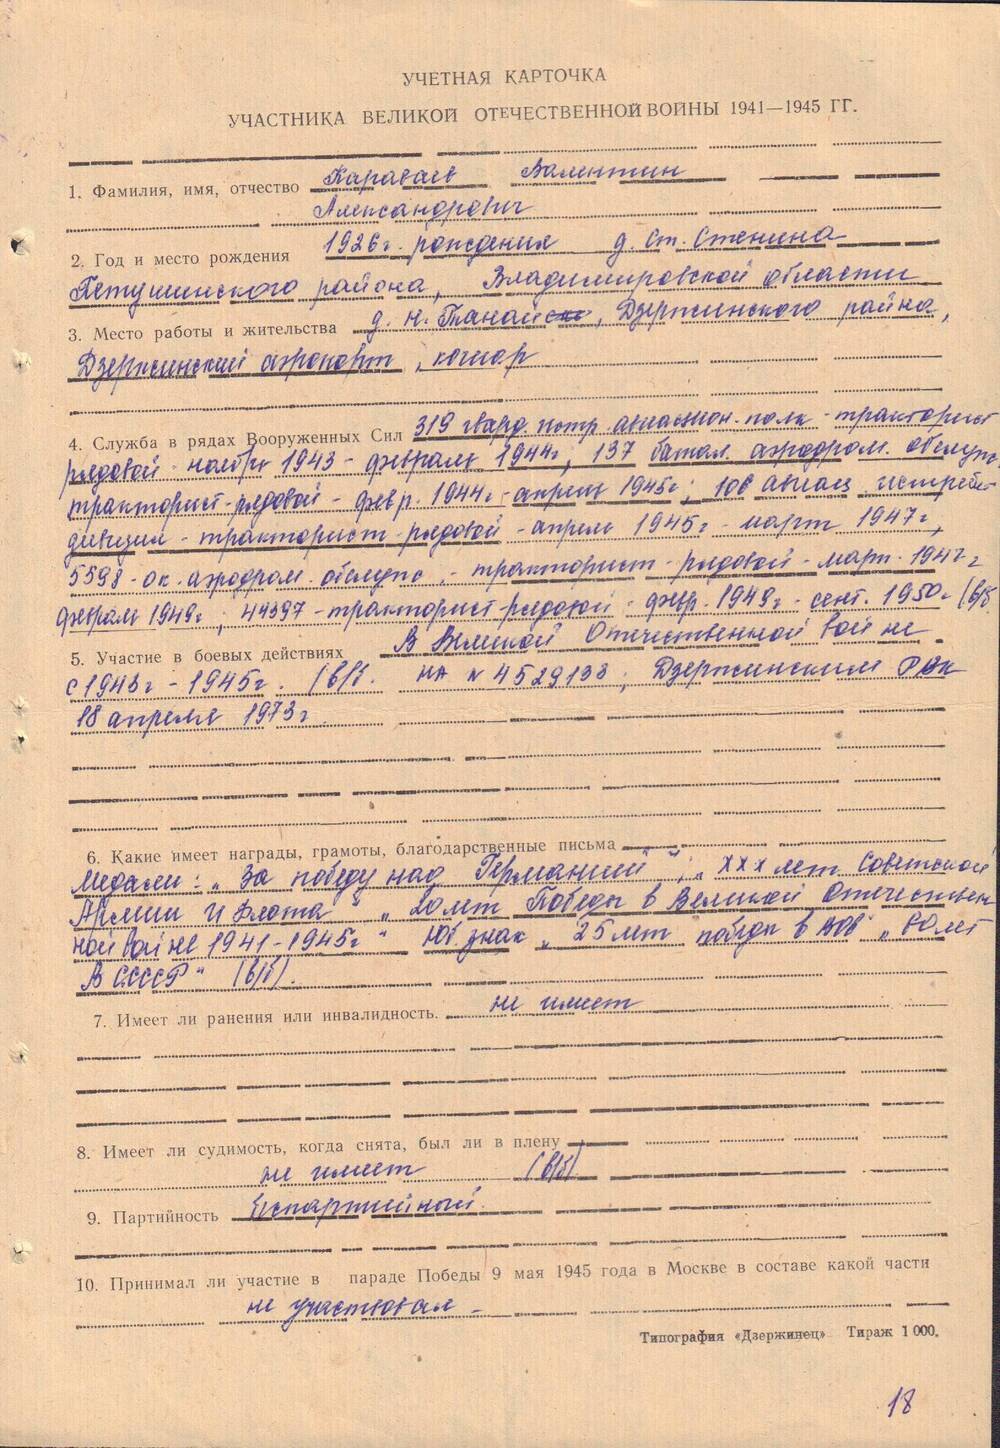 УЧЕТНАЯ КАРТОЧКА
УЧАСТНИКА ВЕЛИКОЙ ОТЕЧЕСТВЕННОЙ ВОЙНЫ 1941—1945 ГГ.
1. Фамилия, имя, отчество Караваев Валентин
Александрович
2. Год и место рождения 1926 г. рождения д. Ст. Стенина
Петушинского района, Владимировской области
3. Место работы и жительства д. Н. Танай, Дзержинского района,
Дзержинский аэропорт, кочегар
4. Служба в рядах Вооруженных Сил 319 гвард. истр. авиацион. полк - тракторист
рядовой - ноябрь 1943 - февраль 1944 г, 137 батал. аэродром. обслуж.
тракторист-рядовой - февр. 1944 г - апрель 1945 г; 106 авиац истребит
дивизии - тракторист-рядовой - апрель 1945 г - март 1947 г,
5598 - ок. аэродром. обслуж. - тракторист-рядовой - март. 1947 г
февраль 1949 г; 44397 - тракторист-рядовой - февр. 1949 г - сент. 1950 г (в/б
5. Участие в боевых действиях В Великой Отечественной войне
с 1943 г - 1945 г. (в/б. НА № 4529138; Дзержинским РВК
18 апреля 1973 г.
6. Какие имеет награды, грамоты, благодарственные письма
Медали: „За победу над Германией", „XXX лет Советской
Армии и Флота" „20 лет Победы в Великой Отечествен
ной войне 1941-1945 г" Юб знак „25 лет победы в ВОВ" „50 лет
В СССР" (в/б).
7. Имеет ли ранения или инвалидность. не имеет
8. Имеет ли судимость, когда снята, был ли в плену
не имеет (в/б)
9. Партийность Беспартийный.
10. Принимал ли участие в параде Победы 9 мая 1945 года в Москве в составе какой части
не участвовал -
Типография «Дзержинец» Тираж 1 000.
18